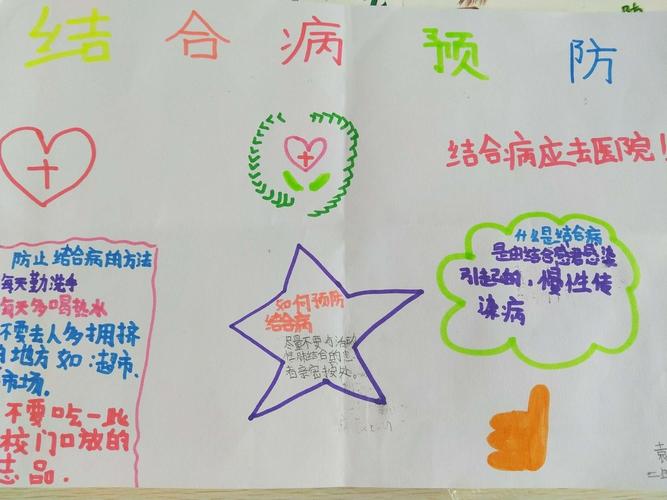 结合病预防
结合病应去医院！
防止结合病的方法
每天勤洗手
每天多喝热水
不要去人多拥挤
的地方如：超市、
市场.
不要吃一些
校门口放的
如何预防
结合病
尽量不要与活动
性肺结合的患
者亲密接处。
什么是结合病
是由结合感君感染
引起的，慢性传
染病